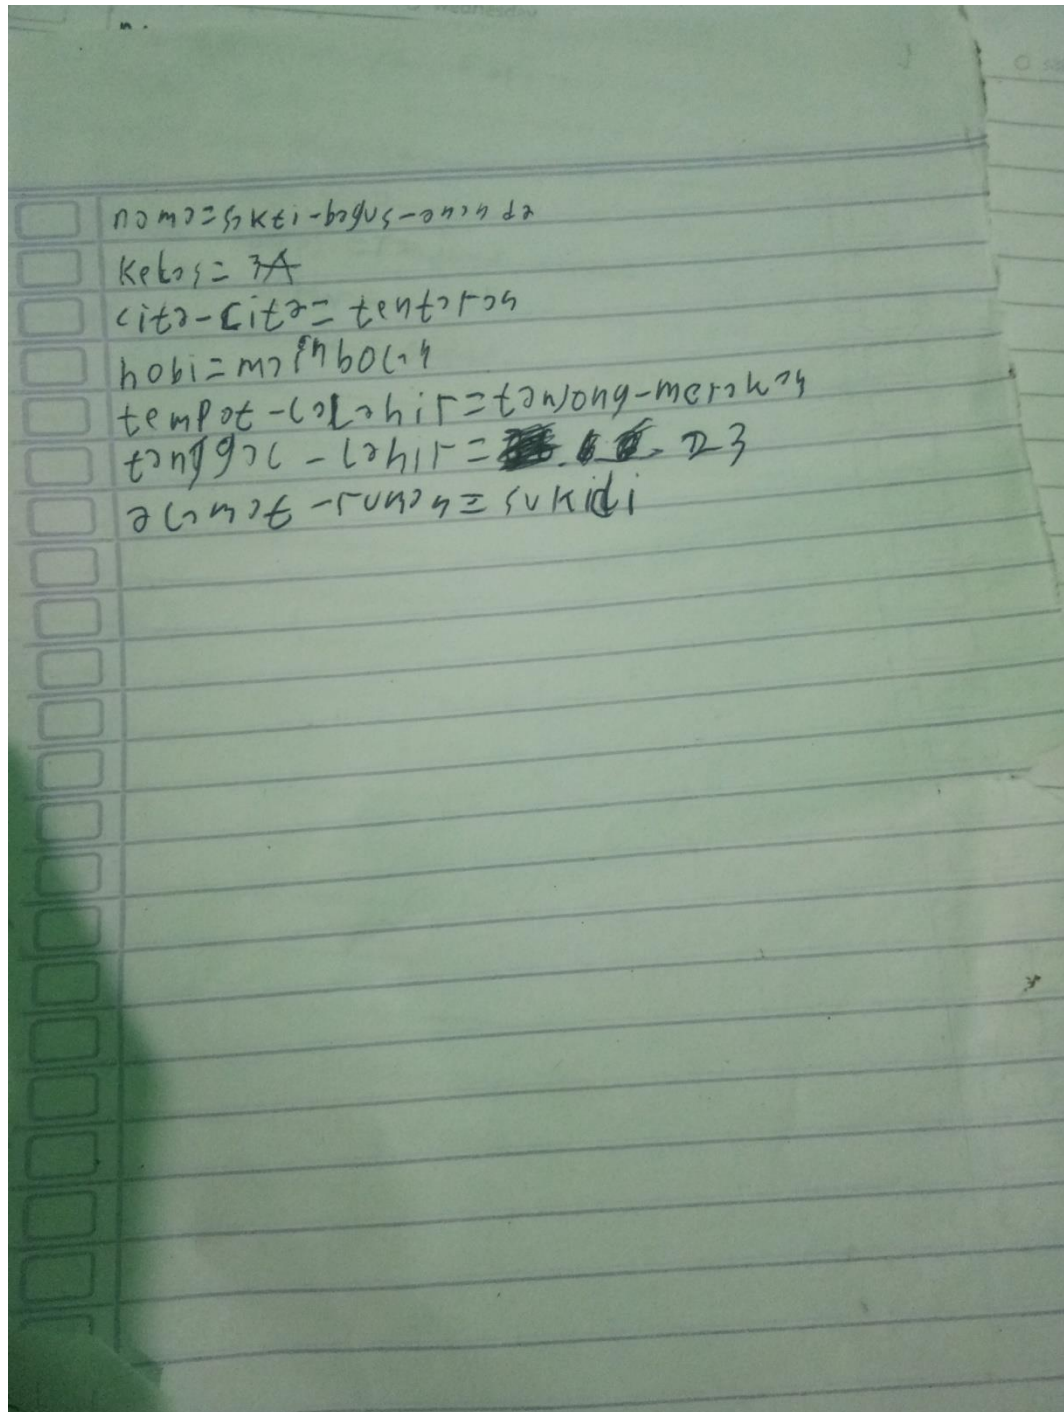 Wednesday
nama=sakti-bagus-
kelas= 3A
cita-cita= tentarah
hobi=main bolah
tempat-lalahir=tanjong-merakah
tanggal-lahir= 23
alamat-rumah=sukidi